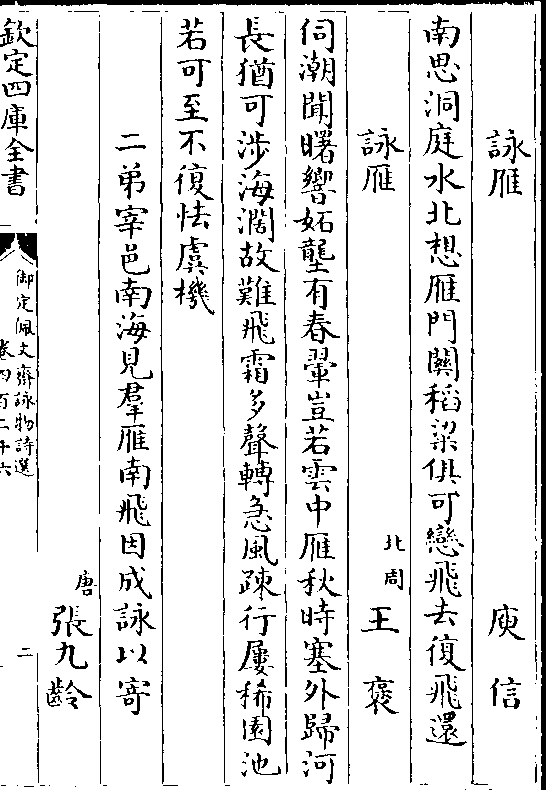 詠雁 庾信
南思洞庭水北想雁門闗稻粱俱可戀飛去復飛還
詠雁 北周 王褒
伺潮聞曙響妬壟有春翬豈若雲中雁秋時塞外歸河
長猶可涉海濶故難飛霜多聲轉急風疎行屢稀園池
若可至不復怯虞機
二弟宰邑南海見羣雁南飛因成詠以寄
唐 張九齡
欽定四庫全書
御定佩文齋詠物詩選
卷四百二十六
二